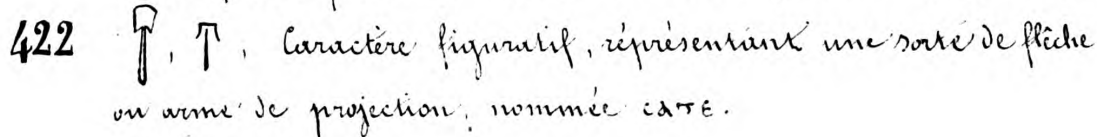 422 , , Caractère figuratif, réprésentant une sorte de flêche
ou arme de projection, nommée ⲥⲁⲧⲉ.